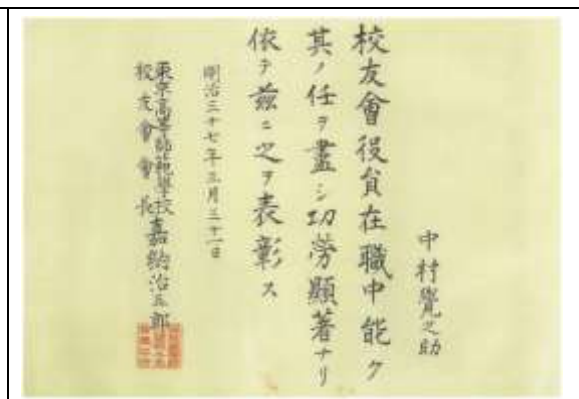 中村覺之助
校友會役員在職中能ク
其ノ任ヲ盡シ功勞顯著ナリ
依テ茲ニ之ヲ表彰ス
明治三十七年三月三十一日
東京高等師範學校
校友會會長嘉納治五郎